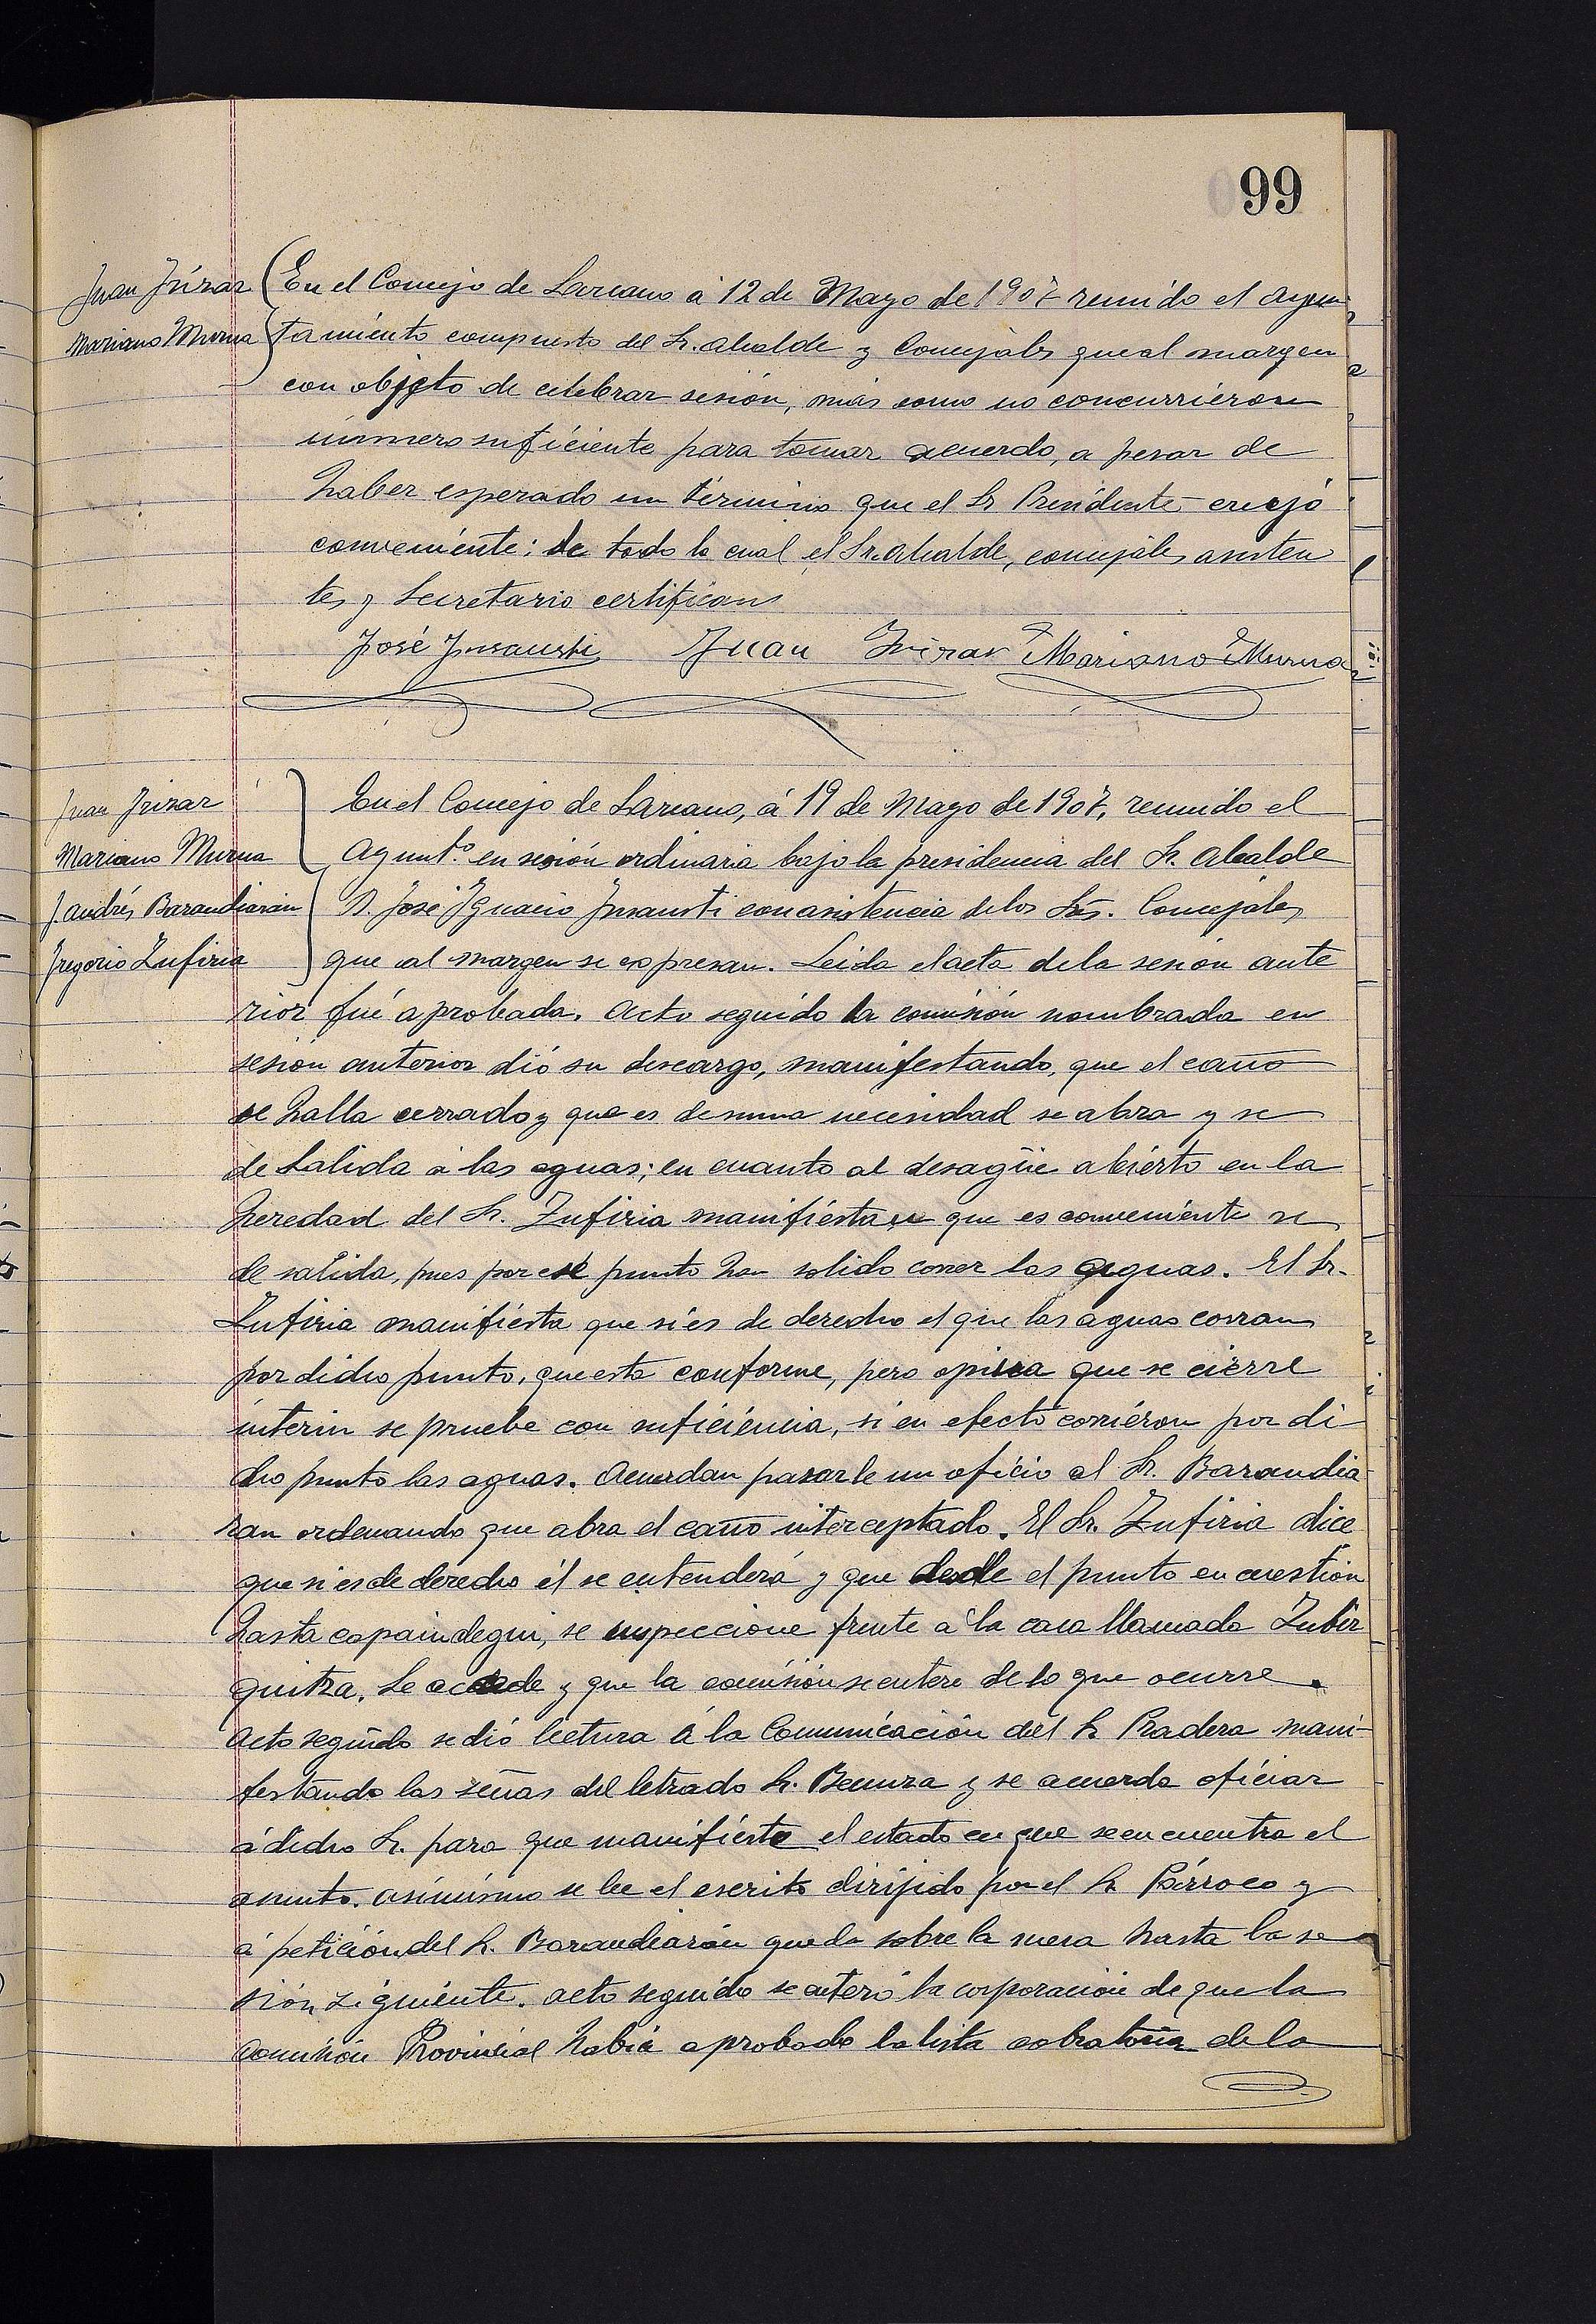 99
Juan Irizar
Mariano Murua
En el Concejo de Lazcano á 12 de Mayo de 1907 reunido el ayun
tamiento compuesto del Sr. alcalde y Concejales que al margen
con objeto de celebrar sesión, más como no concurrieron
número suficiente para tomar acuerdo, a pesar de
haber esperado un término que el Sr Presidente creyó
conveniente: de todo lo cual el Sr. alcalde, concejales asisten
tes y Secretario certifican
José Insausti Juan Irizar Mariano Murua
Juan Irizar
Mariano Murua
J. Andrés Barandiarán
Gregorio Zufiria
En el Concejo de Lazcano, á 19 de Mayo de 1907, reunido el
Ayunt.º en sesión ordinaria bajo la presidencia del Sr. alcalde
D. José Ignacio Insausti con asistencia de los Srs. Concejales
que al margen se expresan. Leida el acta de la sesión ante
rior fué aprobada. Acto seguido la comisión nombrada en
sesión anterior dió su descargo, manifestando, que el caño
se halla cerrado y que es de suma necesidad se abra y se
de salida á las aguas; en cuanto al desagüe abierto en la
heredad del Sr. Zufiria manifiestan que es conveniente se
de salida, pues por ese punto han solido correr las aguas. El Sr.
Zufiria manifiesta que si es de derecho el que las aguas corran
por dicho punto, que esta conforme, pero opina que se cierre
interin se pruebe con suficiencia, si en efecto corrieron por di
cho punto las aguas. Acuerdan pasarle un oficio al Sr. Barandia
ran ordenando que abra el caño interceptado. El Sr. Zufiria dice
que si es de derecho él se entenderá y que desde el punto en cuestión
hasta capaindegui, se inspeccione frente á la casa llamada Zubir
quitza. Se accede y que la comisión se entere de lo que ocurre.
Acto seguido se dió lectura á la Comunicación del Sr Pradera mani-
festando las señas del letrado Sr. Becunza y se acuerda oficiar
á dicho Sr. para que manifieste el estado en que se encuentra el
asunto. asimismo se lee el escrito dirijido por el Sr Párroco y
á petición del Sr. Barandiarán queda sobre la mesa hasta la se
sión siguiente. acto seguido se enteró la corporación de que la
Comisión Provincial había aprobado la lista cobratoria de la